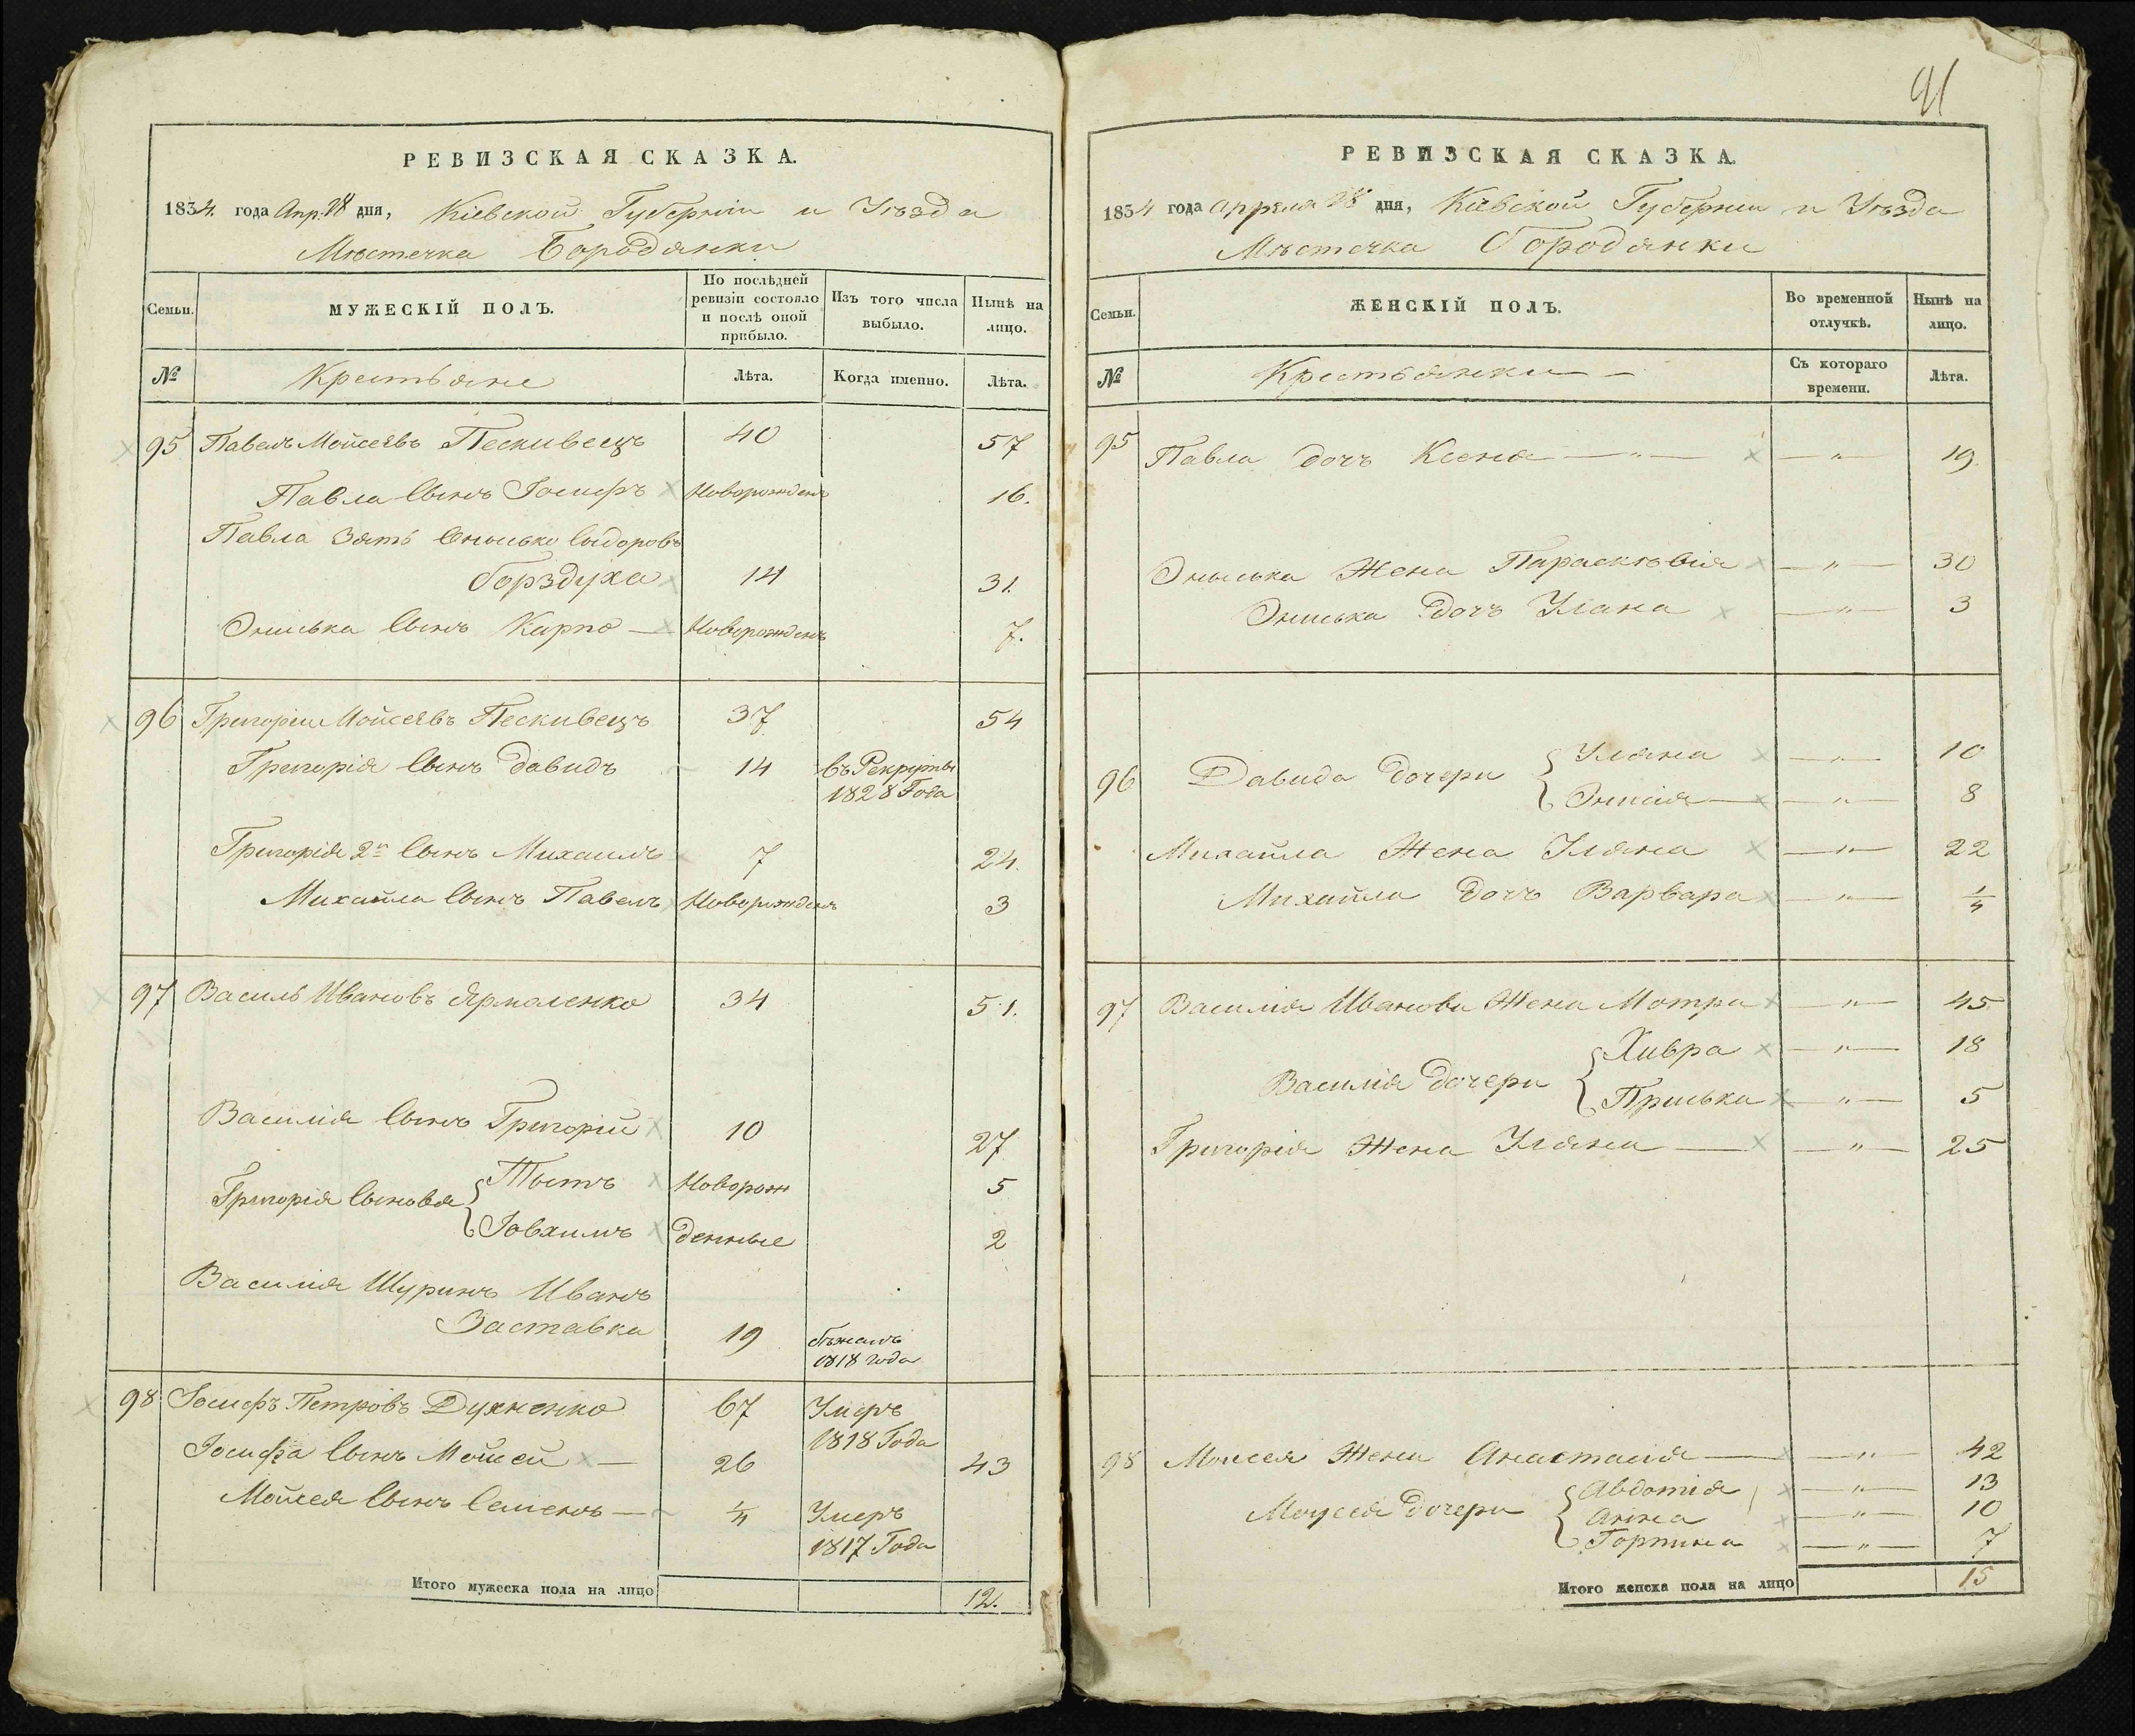 РЕВИЗСКАЯ СКАЗКА.
1834. года Апр: 28 дня, Кіевской Губерніи и Уѣзда
Мѣстечка Бородянки
Семьи. МУЖЕСКІЙ ПОЛЪ. По послѣдней ревизіи состояло и послѣ оной прибыло. Изъ того числа выбыло. Нынѣ на лицо.
№ Крестьяне Лѣта. Когда именно. Лѣта.
95 Павелъ Мойсеевъ Пескивецъ 40 57
Павла Сынъ Іосифъ Новорожденъ 16.
Павла Зять Онисько Сидоровъ
Борздуха 14 31.
Ониська Сынъ Карпо — Новорожденъ 7.
96 Григорій Мойсеевъ Пескивецъ 37 54
Григорія Сынъ Давидъ 14 въ Рекруты
1828 Года
Григорія 2й Сынъ Михаилъ 7 24.
Михайла Сынъ Павелъ Новорожденъ 3
97 Василь Ивановъ Ярмоленко 34 51.
Василія Сынъ Григорій 10 27
Григорія Сыновья { Титъ Новорож 5
Іовхимъ денные 2
Василія Шуринъ Иванъ
Заставка 19 бѣжалъ
1818 года
98 Іосифъ Петровъ Духненко 67 Умеръ
1818 Года
Іосифа Сынъ Мойсей — 26 43
Мойсея Сынъ Семенъ — 1/4 Умеръ
1817 Года
Итого мужеска пола на лицо 12.
91
РЕВИЗСКАЯ СКАЗКА.
1834 года Апреля 28 дня, Кіевской Губерніи и Уѣзда
Мѣстечка Бородянки
Семьи. ЖЕНСКІЙ ПОЛЪ. Во временной отлучкѣ. Нынѣ на лицо.
№ Крестьянки — Съ котораго времени. Лѣта.
95 Павла дочь Ксеня — " — — " — 19.
Ониська Жена Параскѣвія — " — 30
Ониська дочь Уляна — " — 3
96 Давида дочери { Уляна — " — 10
Онисія — — " — 8
Михайла Жена Уляна — " — 22
Михайла дочь Варвара — " — 1/4
97 Василія Иванова Жена Мотра — " — 45
Василія дочери { Хивра — " — 18
Приська — " — 5
Григорія Жена Уляна — — " — 25
98 Моисея Жена Анастасія — — " — 42
Моусея дочери { Авдотія — " — 13
Анна — " — 10
Горпина — " — 7
Итого женска пола на лицо 15